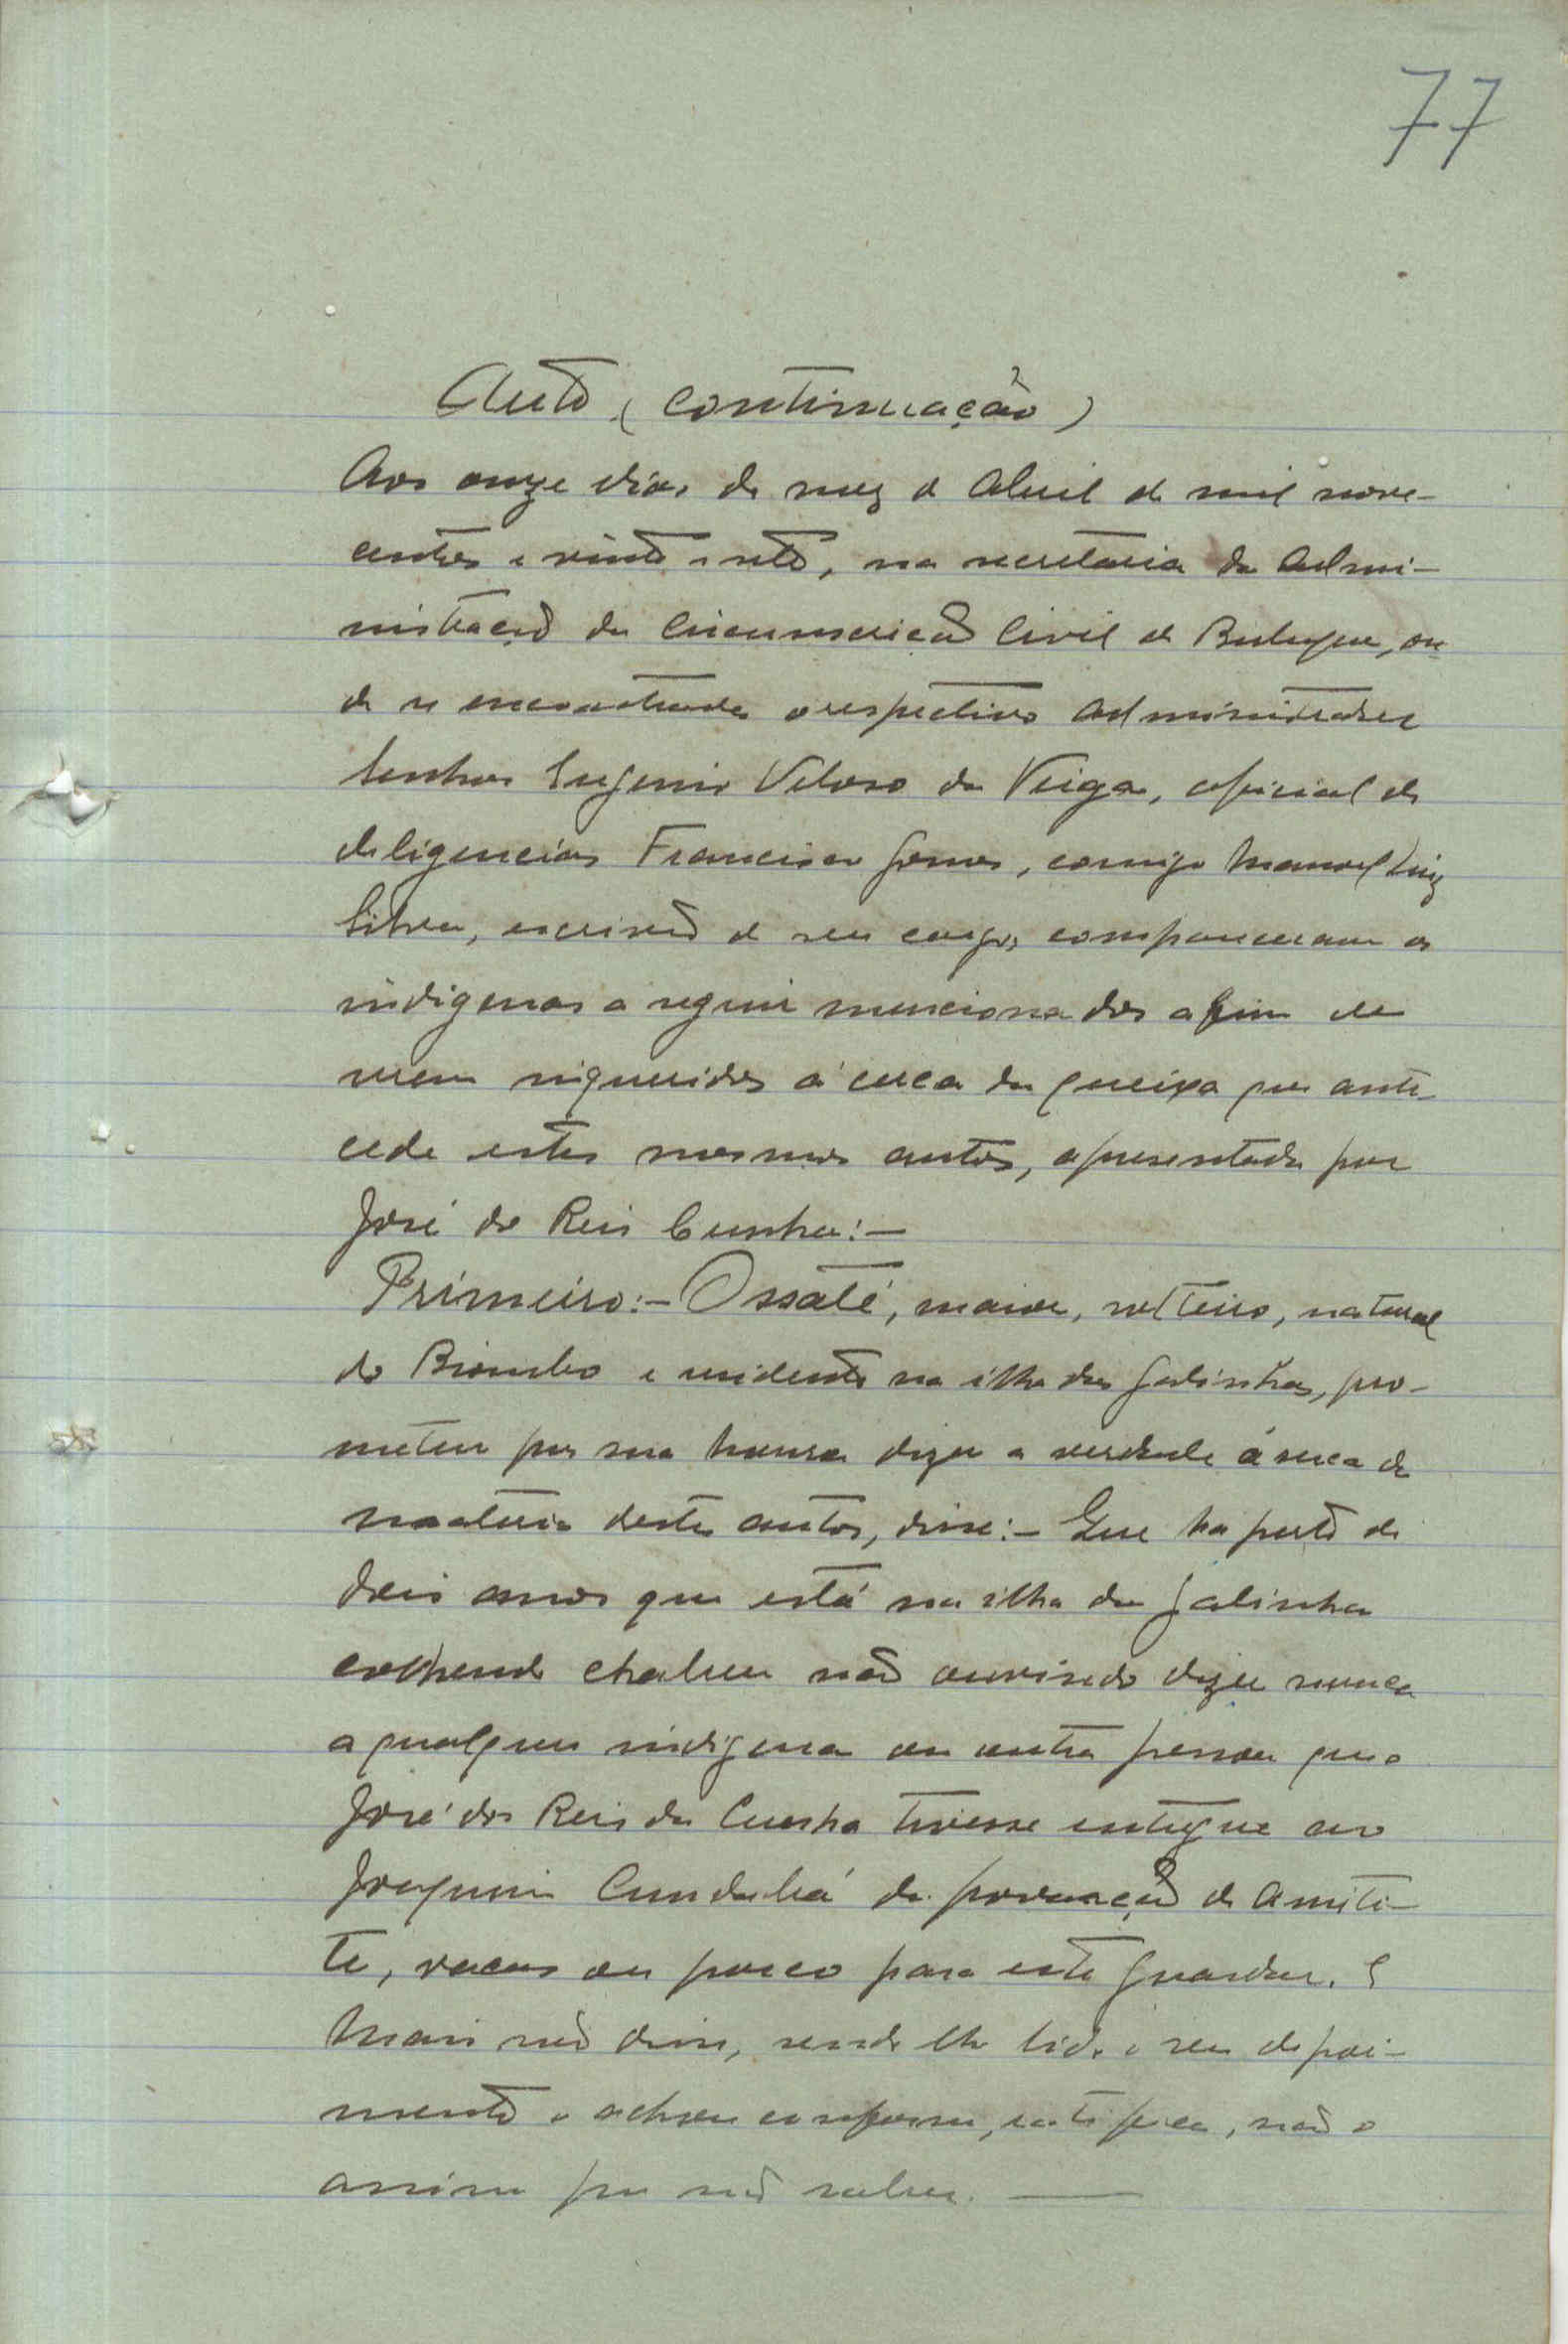 77
Auto (continuação)
Aos onze dias do mez de Abril de mil nove-
centos e vinte e sete, na secretaria da Admi-
nistração da Circumscrição Civil de Bubaque, on-
de se encontrava o respectivo administrador
Senhor Eugenio Veloso da Veiga, oficial de
deligencias Francisco Gomes, comigo Manoel Luiz
Silva, escrivão de seu cargo, compareceram os
indigenas a seguir mencionados afim de
serem inqueridos ácerca da queixa que ante-
cede estes mesmos autos, apresentada por
José do Reis Cunha:-
Primeiro:- Ossaté, maior, solteiro, natural
do Biombo e residente na ilha das Galinhas, pro-
meteu por sua honra dizer a verdade ácerca da
materia destes autos, disse:- Que ha perto de
dois anos que está na ilha das Galinhas
colhendo chabeu não ouvindo dizer nunca
a qualquer indigena ou outra pessoa que o
José dos Reis da Cunha tivesse entregue ao
Joaquim da povoação de Amiti-
te, vacas ou porco para este guardar. E
mais não disse, sendo lhe lido o seu depoi-
mento o achou conforme, ratifica, não o
assina por não saber.